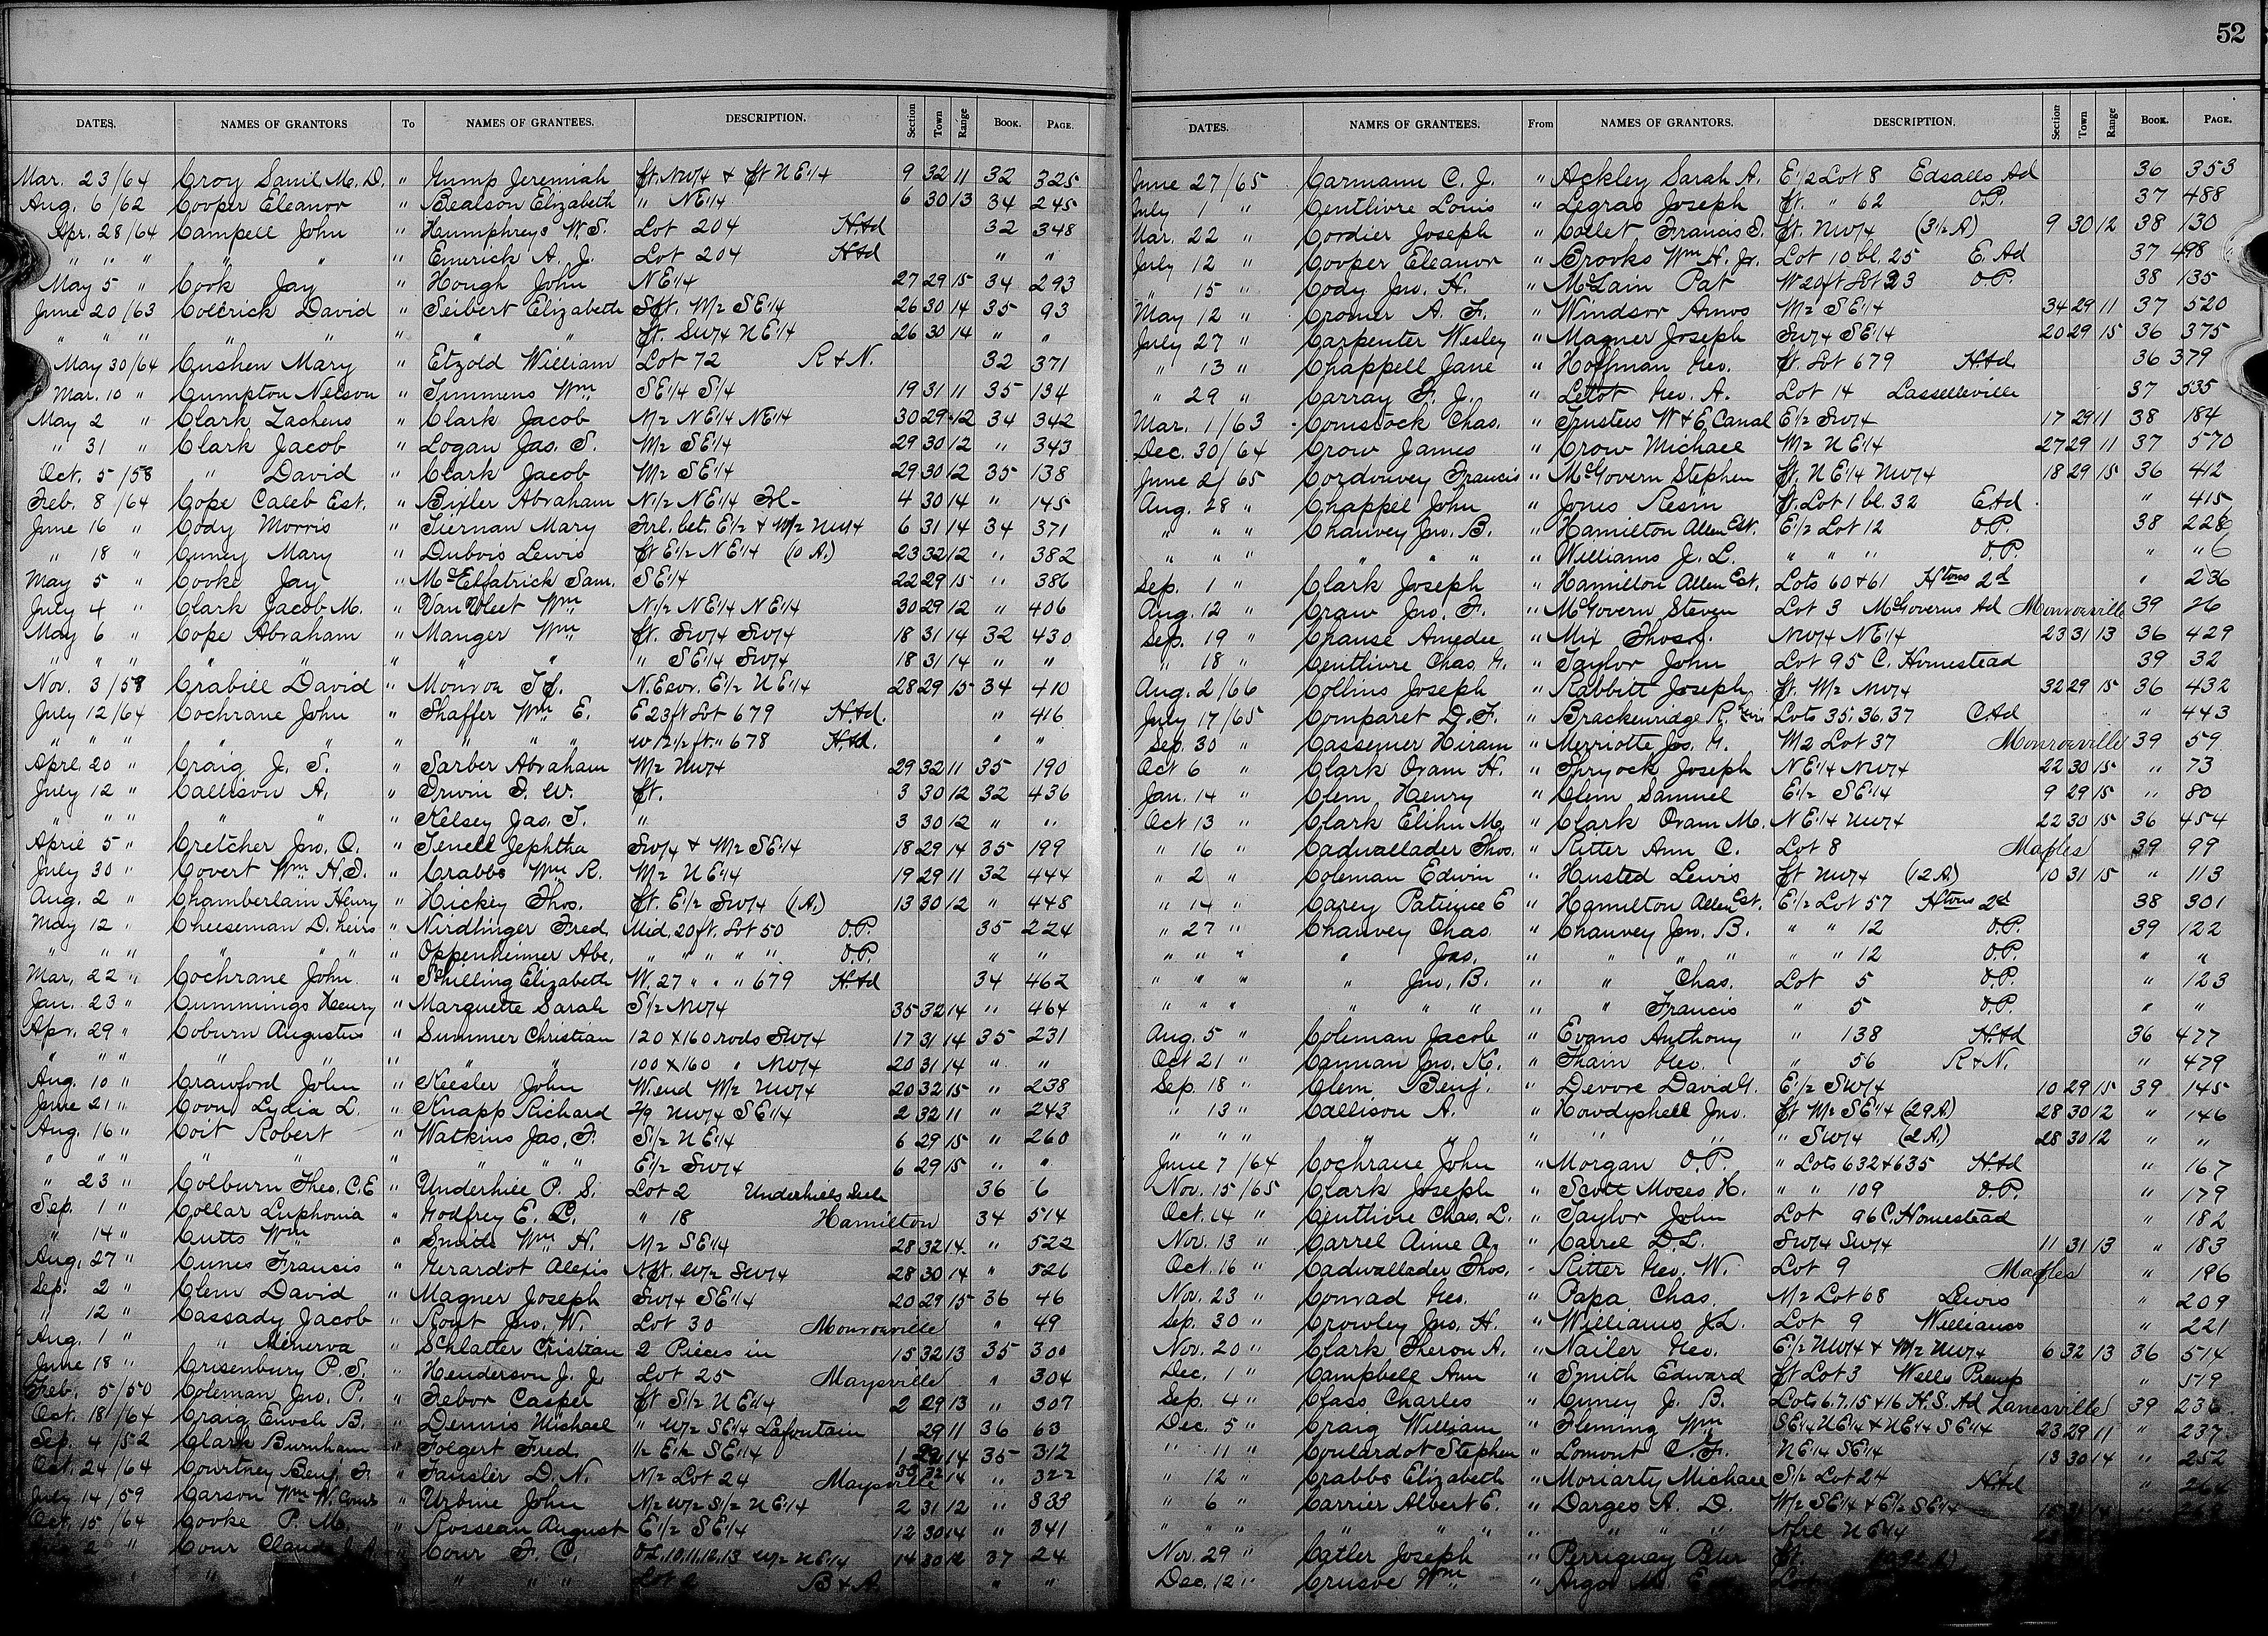 52
DATES. NAMES OF GRANTORS To NAMES OF GRANTEES. DESCRIPTION. Section Town Range BOOK. PAGE.
Mar. 23/64 Croy Saml. M. D. " Gump Jeremiah Pt. NW1/4 & Pt NE1/4 9 32 11 32 325
Aug. 6/62 Cooper Eleanor " Bealson Elizabeth " NE1/4 6 30 13 34 245
Apr. 28/64 Campell John " Humphreys W. S. Lot 204 H.Ad 32 348
" " " " " " Emerick A. J. Lot 204 H.Ad " "
May 5 " Cook Jay " Hough John NE1/4 27 29 15 34 293
June 20/63 Colerick David " Seibert Elizabeth S Pt. W1/2 SE1/4 26 30 14 35 93
" " " " " " " " Pt. SW1/4 NE1/4 26 30 14 " "
May 30/64 Cushen Mary " Etzold William Lot 72 R & N. 32 371
Mar. 10 " Cumpton Nelson " Timmens Wm SE1/4 S1/4 19 31 11 35 134
May 2 " Clark Zacheus " Clark Jacob W1/2 NE1/4 NE1/4 30 29 12 34 342
" 31 " Clark Jacob " Logan Jas. S. W1/2 SE1/4 29 30 12 " 343
Oct. 5/58 " David " Clark Jacob W1/2 SE1/4 29 30 12 35 138
Feb. 8/64 Cope Caleb Est. " Bixler Abraham N1/2 NE1/4 Fl- 4 30 14 " 145
June 16 " Cody Morris " Tiernan Mary Frl. bet. E1/2 & W1/2 NW1/4 6 31 14 34 371
" 18 " Cuney Mary " Dubois Lewis Pt E1/2 NE1/4 (10 A.) 23 32 12 " 382
May 5 " Cooke Jay " McElfatrick Sam. SE1/4 22 29 15 " 386
July 4 " Clark Jacob M. " Van Vleet Wm N1/2 NE1/4 NE1/4 30 29 12 " 406
May 6 " Cope Abraham " Manger Wm Pt. SW1/4 SW1/4 18 31 14 32 430
" " " " " " " " " SE1/4 SW1/4 18 31 14 " "
Nov. 3/58 Crabill David " Monroe T. J. N.E cor. E1/2 NE1/4 28 29 15 34 410
July 12/64 Cochrane John " Shaffer Wm E. E 23 ft Lot 679 H.Ad. " 416
" " " " " " " " " W 12 1/2 ft. " 678 H.Ad. " "
Aprl. 20 " Craig J. S. " Sarber Abraham W1/2 NW1/4 29 32 11 35 190
July 12 " Callison A. " Irwin I. W. Pt. 3 30 12 32 436
" " " " " " Kelsey Jas. T. " 3 30 12 " "
April 5 " Cretcher Jno. O. " Tenell Jephtha SW1/4 & W1/2 SE1/4 18 29 14 35 199
July 30 " Covert Wm H. D. " Crabbs Wm R. W1/2 NE1/4 19 29 11 32 444
Aug. 2 " Chamberlain Henry " Hickey Thos. Pt. E1/2 SW1/4 (1 A.) 13 30 12 " 448
May 12 " Cheeseman D. heirs " Nirdlinger Fred. Mid. 20 ft. Lot 50 O.P. 35 224
" " " " " " " Oppenheimer Abe, " " " " " O.P. " "
Mar. 22 " Cochrane John " Schilling Elizabeth W. 27 " " " 679 H.Ad 34 462
Jan. 23 " Cummings Henry " Marquette Sarah S1/2 NW1/4 35 32 14 " 464
Apr. 29 " Coburn Augustus " Summer Christian 120 x 160 rods SW1/4 17 31 14 35 231
" " " " " " " " 100 x 160 " NW1/4 20 31 14 " "
Aug. 10 " Crawford John " Keesler John W. end W1/2 NW1/4 20 32 15 " 238
June 21 " Coon Lydia L. " Knapp Richard 2/9 NW1/4 SE1/4 2 32 11 " 243
Aug. 16 " Coit Robert " Watkins Jas, F. S1/2 NE1/4 6 29 15 " 260
" " " " " " " " " E1/2 SW1/4 6 29 15 " "
" 23 " Colburn Theo. C. E " Underhill P. S. Lot 2 Underhills Sub 36 6
Sep. 1 " Collar Luphonia " Godfrey E. D. " 18 Hamilton 34 514
" 14 " Cutts Wm " Smith Wm H. W1/2 SE1/4 28 32 14 " 522
Aug. 27 " Cunes Francis " Girardot Alexis N Pt. W1/2 SW1/4 28 30 14 " 526
Sep. 2 " Clem David " Magner Joseph SW1/4 SE1/4 20 29 15 36 46
" 12 " Cassady Jacob " Rout Jno. W. Lot 30 Monroeville " 49
Aug. 1 " " Minerva " Schlatter Cristian 2 Pieces in 15 32 13 35 300
June 18 " Crisenbury P. S. " Henderson J. J. Lot 25 Maysville " 304
Feb. 5/50 Coleman Jno. P. " Febor Casper Pt S1/2 NE1/4 2 29 13 " 307
Oct. 18/64 Craig Enoch B. " Dennis Michael " W1/2 SE1/4 Lafontain 29 11 36 63
Sep. 4/52 Clark Burnham " Folgert Fred. 1/2 E1/2 SE1/4 1 14 35 312
Oct. 24/64 Courtney Benj. F. " Fansler D. N. N1/2 Lot 24 Maysville " 322
July 14/59 Carson Wm W. Comr " Urbine John N1/2 W1/2 S1/2 NE1/4 2 31 12 " 333
Oct. 15/64 Cooke P. M. " Rosseau August E1/2 SE1/4 12 30 14 " 341
2 " Cour Claude J. A. " Cour F. C. O.L. 10, 11, 12, 13 W1/2 NE1/4 14 30 12 37 24
" " " " Lot B & A " "
DATES. NAMES OF GRANTEES. From NAMES OF GRANTORS. DESCRIPTION. Section Town Range BOOK. PAGE.
June 27/65 Carmann C. J. " Ackley Sarah A. E1/2 Lot 8 Edsalls Ad 36 353
July 1 " Centlivre Louis " Legras Joseph Pt. " 62 O.P. 37 488
Mar. 22 " Cordier Joseph " Collet Francis S. Pt. NW1/4 (3 1/2 A) 9 30 12 38 130
July 12 " Cooper Eleanor " Brooks Wm H. Jr. Lot 10 bl. 25 E. Ad 37 498
" 15 " Cody Jno. H. " McLain Pat W 20 ft Lot 23 O.P. 38 135
May 12 " Cromer A. F. " Windsor Amos W1/2 SE1/4 34 29 11 37 520
July 27 " Carpenter Wesley " Magner Joseph SW1/4 SE1/4 20 29 15 36 375
" 13 " Chappell Jane " Hoffman Geo. Pt. Lot 679 H.Ad. 36 379
" 29 " Carray F. J. " Letot Geo. A. Lot 14 Lasselleville 37 535
Mar. 1/63 Comstock Chas. " Trustees W & E Canal E1/2 SW1/4 17 29 11 38 184
Dec. 30/64 Crow James " Crow Michael W1/2 NE1/4 27 29 11 37 570
June 2/65 Cordouvey Francis " McGovern Stephen Pt. NE1/4 NW1/4 18 29 15 36 412
Aug. 28 " Chappel John " Jones Resin Pt. Lot 1 bl. 32 E.Ad " 415
" " " Chauvey Jno. B. " Hamilton Allen Est. E1/2 Lot 12 O.P. 38 226
" " " " " " " Williams J. L. " " " O.P. " " 6
Sep. 1 " Clark Joseph " Hamilton Allen Est. Lots 60 & 61 Htons 2d " 236
Aug. 12 " Craw Jno. F. " McGovern Steven Lot 3 McGoverns Ad Monroeville 39 26
Sep. 19 " Chause Amedee " Mix Thos. NW1/4 NE1/4 23 31 13 36 429
" 18 " Centlivre Chas. " Taylor John Lot 95 C. Homestead 39 32
Aug. 2/66 Collins Joseph " Rabbitt Joseph Pt. W1/2 NW1/4 32 29 15 36 432
July 17/65 Comparet D. F. " Brackenridge R. Lots 35, 36, 37 C.Ad " 443
Sep. 30 " Cassemer Hiram " Merriotte Jos. G. W1/2 Lot 37 Monroeville 39 59
Oct 6 " Clark Oram H. " Shryock Joseph NE1/4 NW1/4 22 30 15 " 73
Jan. 14 " Clem Henry " Clem Samuel E1/2 SE1/4 9 29 15 " 80
Oct 13 " Clark Elihu M. " Clark Oram M. NE1/4 NW1/4 22 30 15 36 454
" 16 " Cadwallader Thos. " Ritter Ann C. Lot 8 Maples 39 99
" 2 " Coleman Edwin " Husted Lewis Pt NW1/4 (12 A.) 10 31 15 " 113
" 14 " Carey Patience E " Hamilton Allen Est. E1/2 Lot 57 Htons 2d 38 301
" 27 " Chauvey Chas. " Chauvey Jno. B. " " 12 O.P. 39 122
" " " " Jos. " " " " " " 12 O.P. " "
" " " " Jno, B. " " Chas. Lot 5 O.P. " 123
" " " " " " " " Francis " 5 O.P. " "
Aug. 5 " Coleman Jacob " Evans Anthony " 138 H.Ad 36 477
Oct 21 " Cannan Jno. K. " Thain Geo. " 56 R & N. " 479
Sep. 18 " Clem Benj. " Devore David G. E1/2 SW1/4 10 29 15 39 145
" 13 " Callison A. " Howdyshell Jno. Pt W1/2 SE1/4 (29 A) 28 30 12 " 146
" " " " " " " " SW1/4 (2 A.) 28 30 12 " "
June 7/64 Cochrane John " Morgan O. P. " Lots 632 & 635 H.Ad " 167
Nov. 15/65 Clark Joseph " Scott Moses H. " " 109 O.P. " 179
Oct. 14 " Centlivre Chas. L. " Taylor John Lot 96 C. Homestead " 182
Nov. 13 " Carrel Aime A. " Carrel D. L. SW1/4 SW1/4 11 31 13 " 183
Oct. 16 " Cadwallader Thos. " Ritter Geo. W. Lot 9 Maples " 196
Nov. 23 " Conrad Geo. " Papa Chas. W1/2 Lot 68 Lewis " 209
Sep. 30 " Crowley Jno. H. " Williams J. L. Lot 9 Williams " 221
Nov. 20 " Clark Theron A. " Nailer Geo. E1/2 NW1/4 & W1/2 NW1/4 6 32 13 36 514
Dec. 1 " Campbell Ann " Smith Edward Pt Lot 3 Wells Preemp " 519
Sep. 4 " Class Charles " Cuney J. B. Lots 6. 7. 15 & 16 H. S. Ad Zanesville 39 236
Dec. 5 " Craig William " Fleming Wm SE1/4 NE1/4 & NE1/4 SE1/4 23 29 11 " 237
" 11 " Coulardot Stephen " Lomont C. F. NE1/4 SE1/4 13 30 14 " 252
" 12 " Crabbs Elizabeth " Moriarty Michael S1/2 Lot 24 H.Ad " 264
" 6 " Carrier Albert E. " Darges A. D. W1/2 SE1/4 & E1/2 SE1/4 15 31 14 " 268
" " " " " " " " " " NE1/4
Nov. 29 " Catler Joseph " Perriguay Peter Pt.
Dec. 12 " Crusoe Wm " Argo M. E.